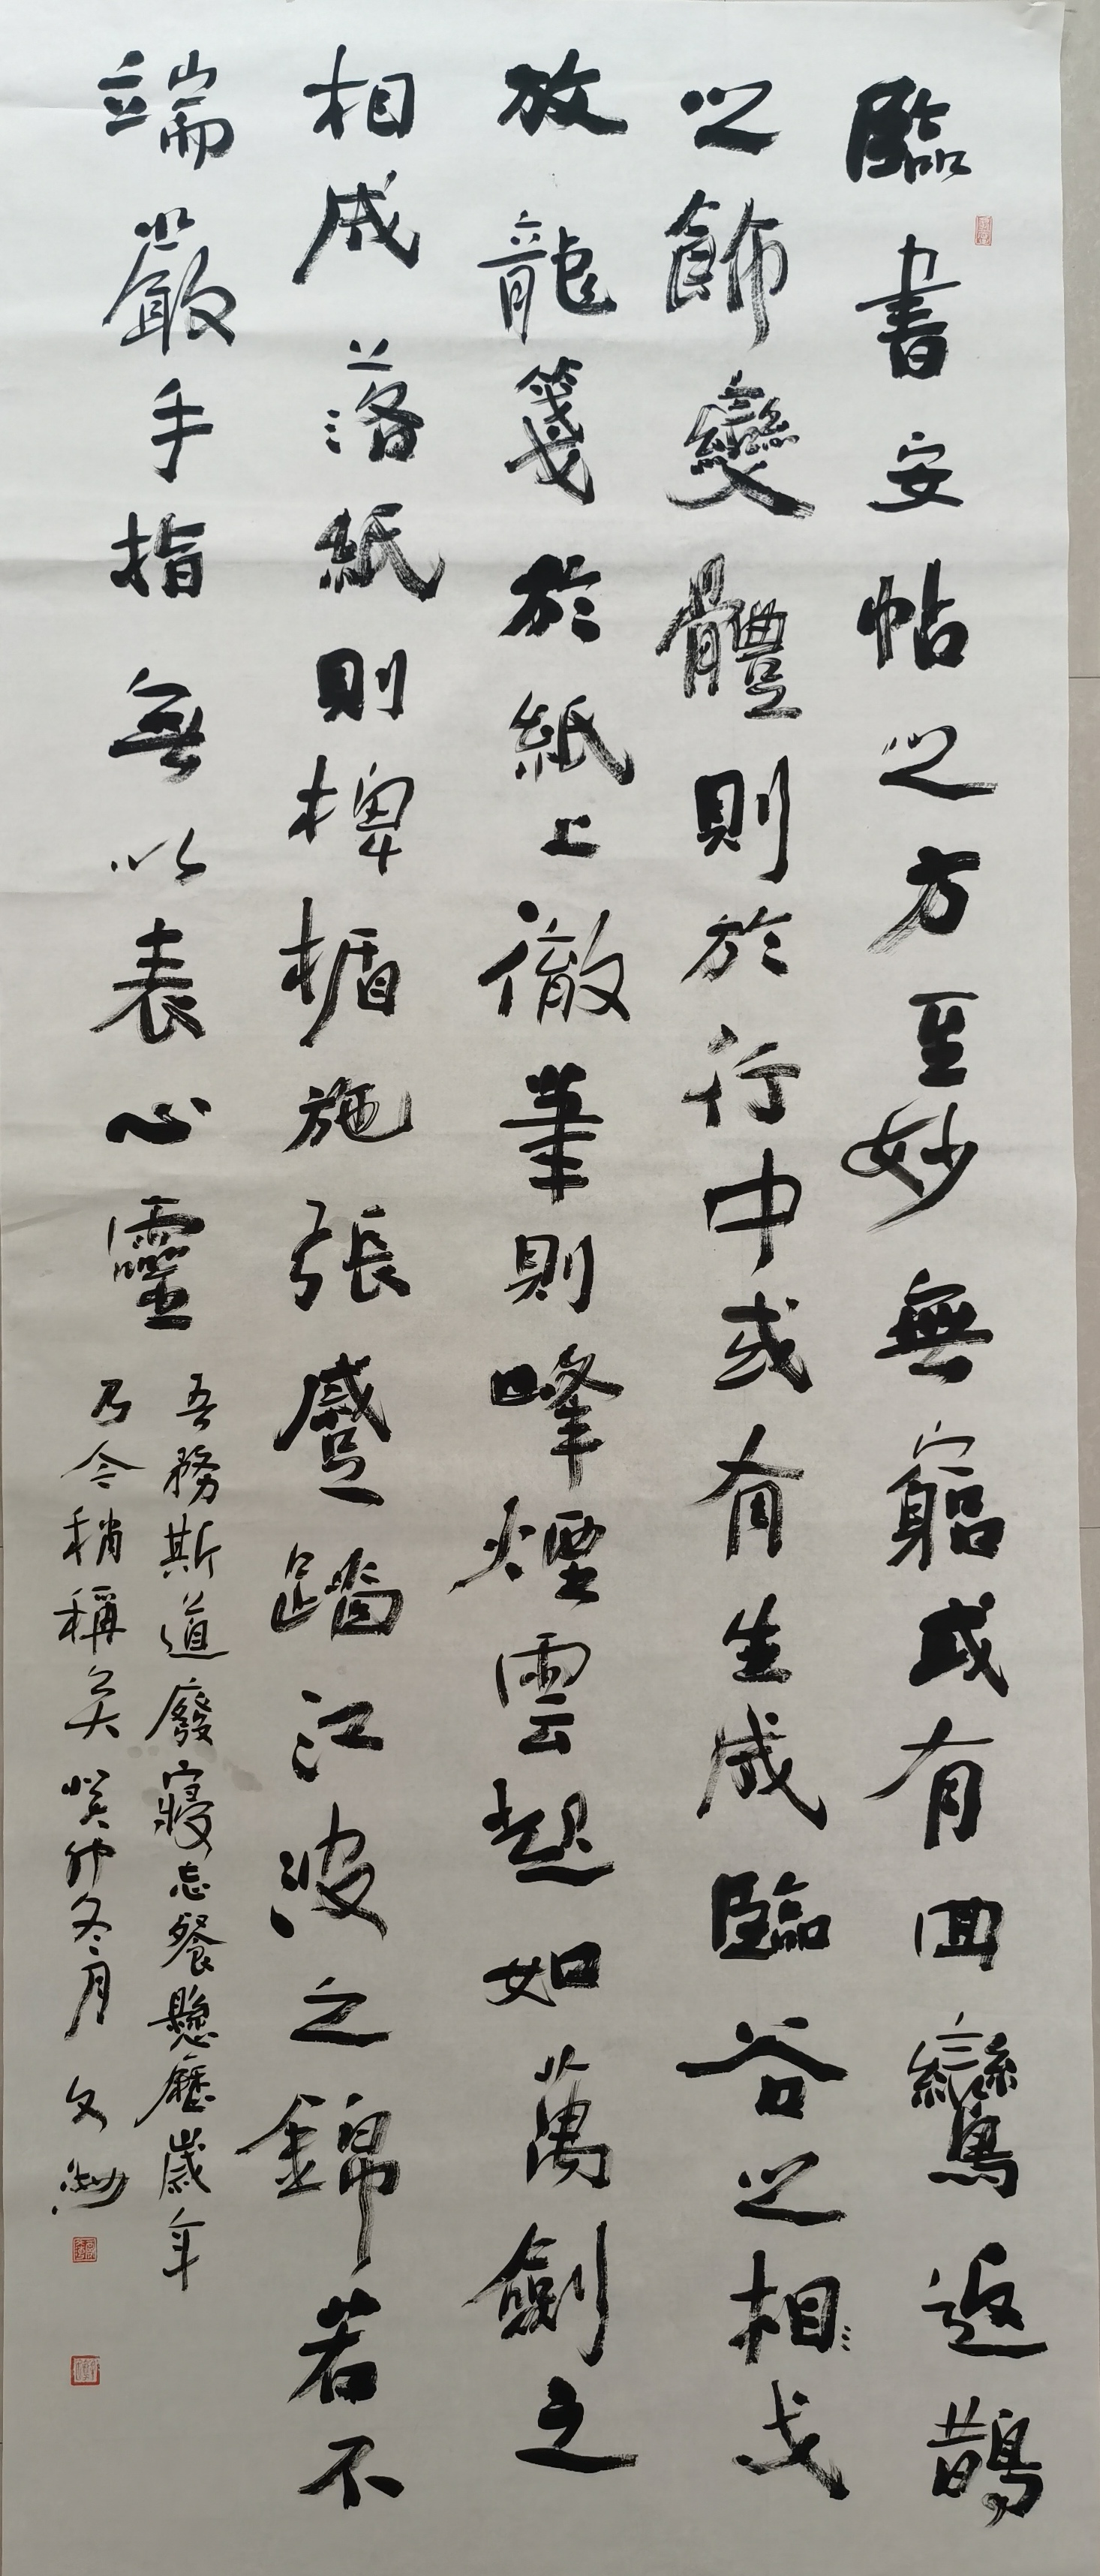 臨書安帖之方至妙無窮或有回鸞返鵲
之飾變體則於行中或有生成臨谷之相戈
放龍箋於紙上徹筆則峰煙雲起如萬劍之
相成落紙則椑楯施張蹙踏江波之錦若不
端嚴手指無以表心靈
吾務斯道廢寢忘餐懸歷歲年
乃今稍稱矣癸卯冬月文